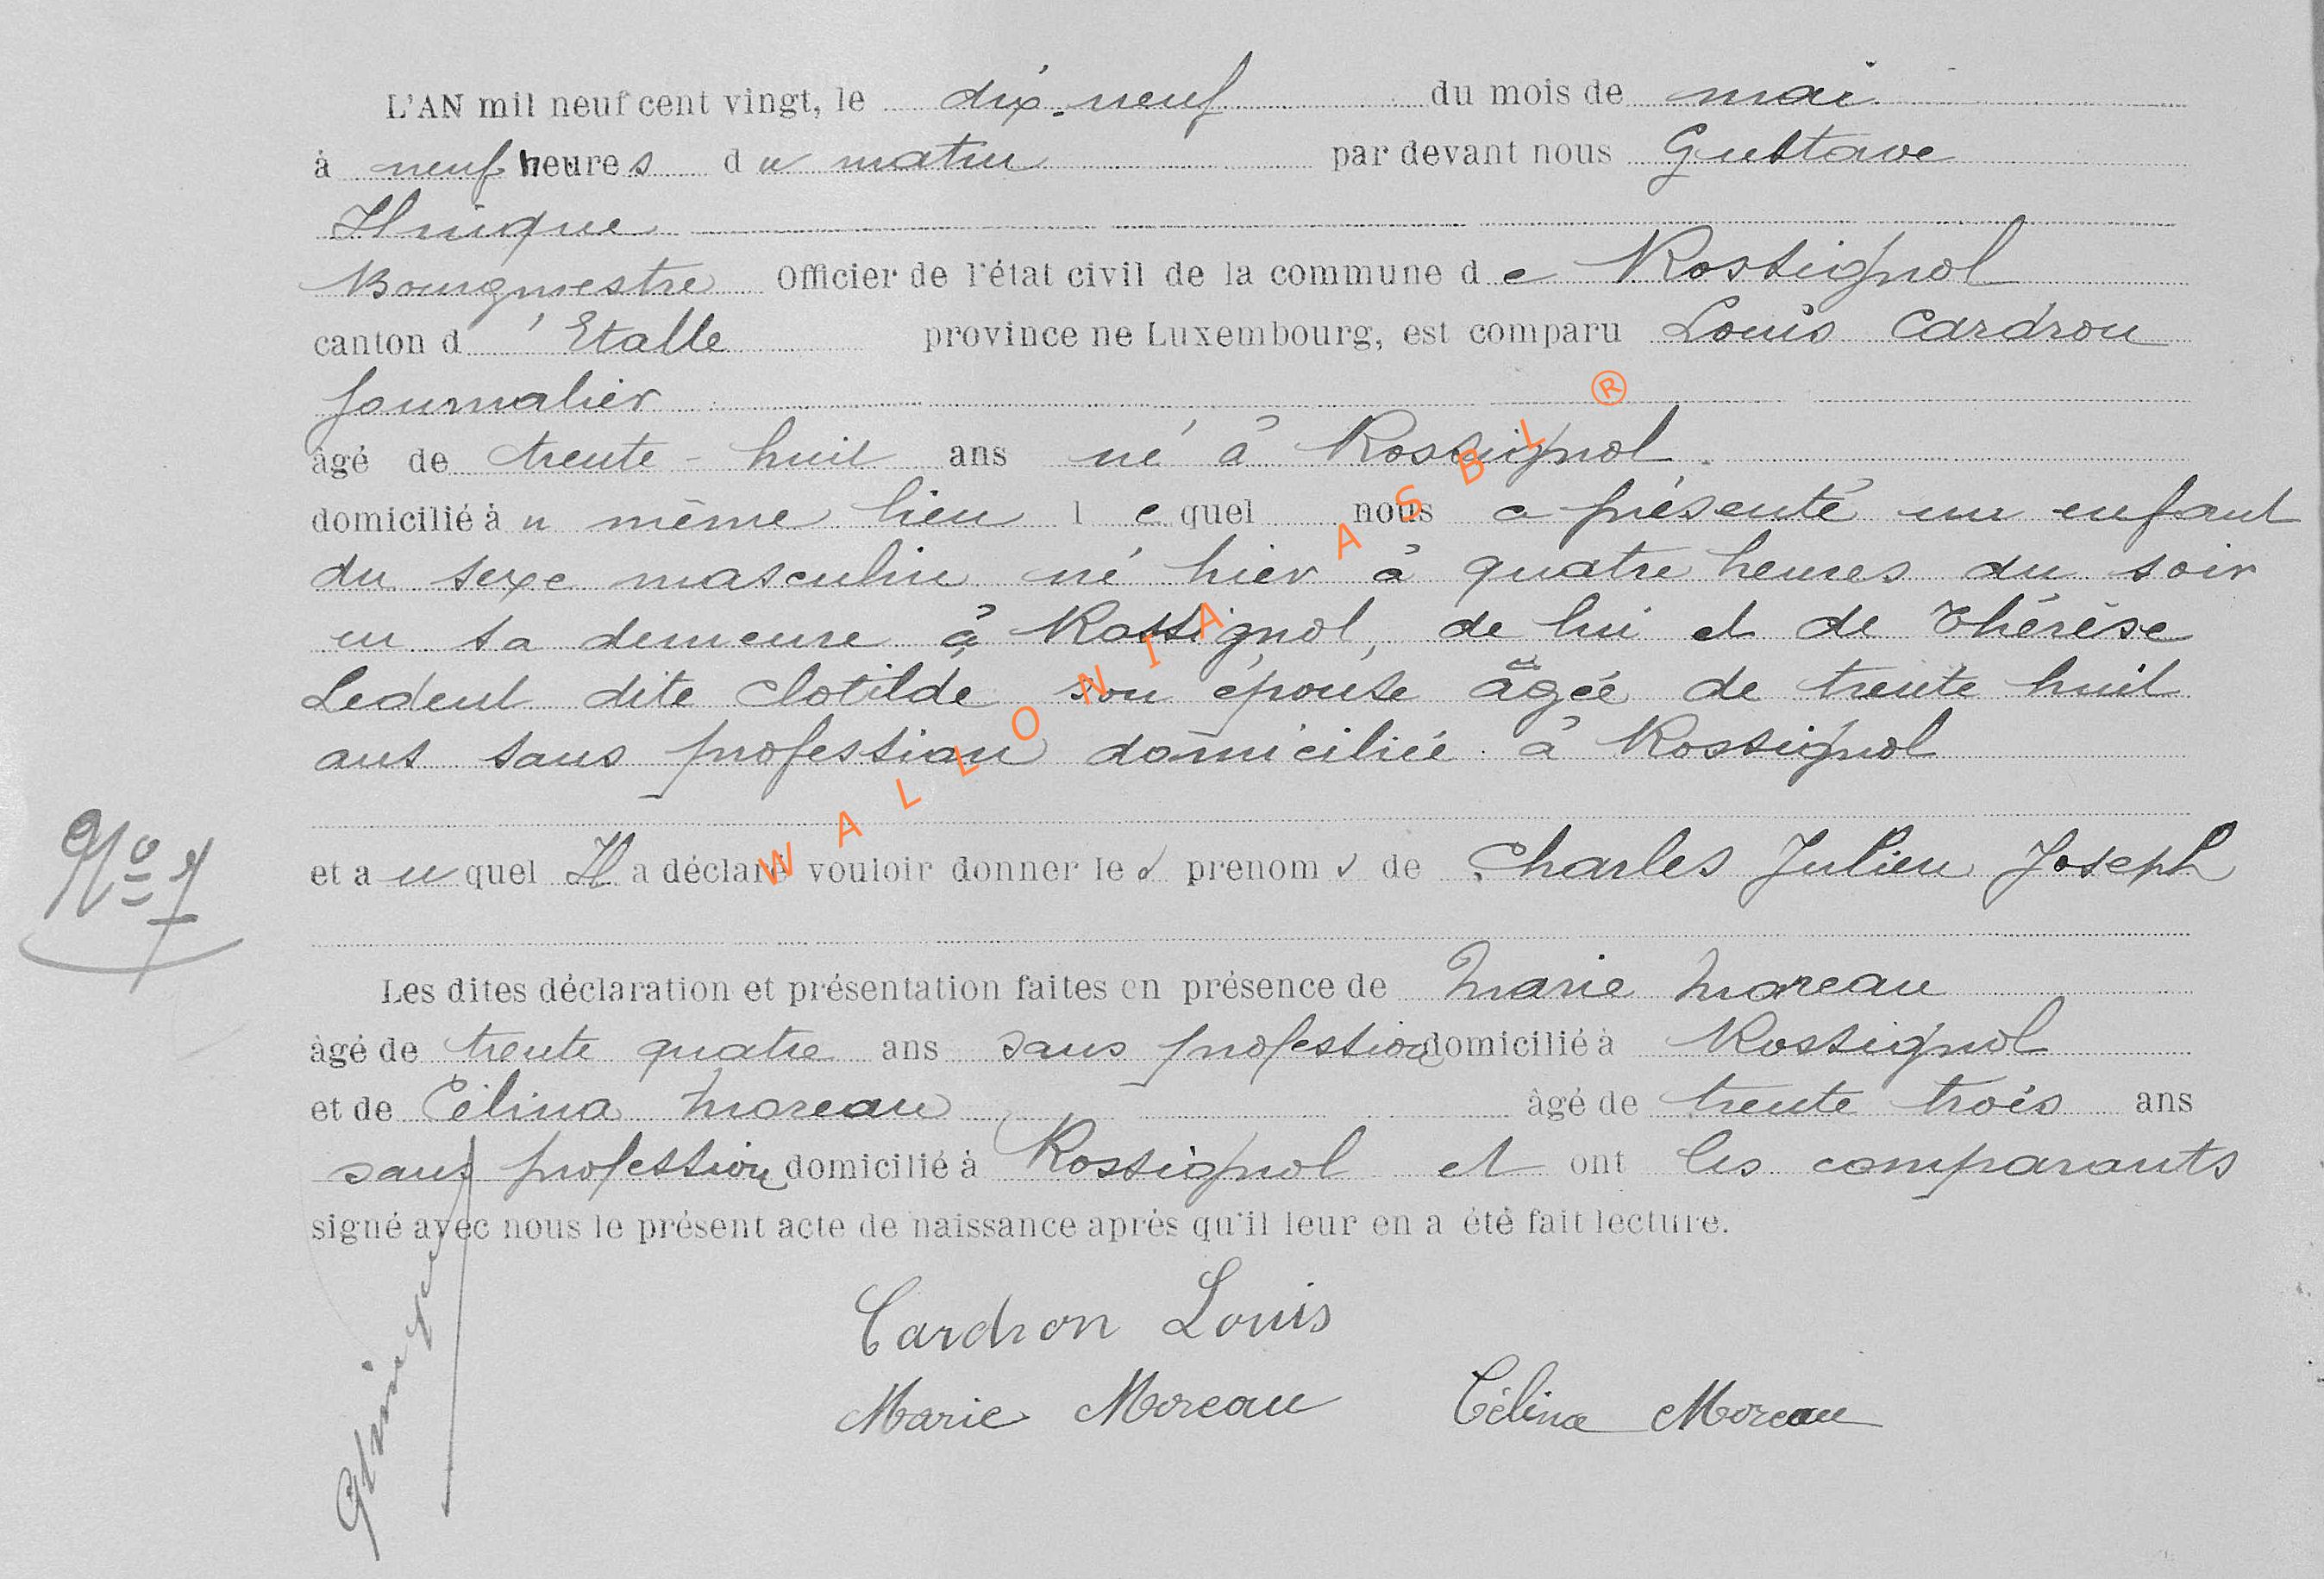 L'AN mil neuf cent vingt, le dix-neuf du mois de mai
à neuf heures du matin par devant nous Gustave
Hinique
Bourgmestre Officier de l'état civil de la commune de Rossignol
canton d'Etalle province ne Luxembourg, est comparu Louis Cardron
Journalier
âgé de trente-huit ans né à Rossignol
domicilié àu même lieu lequel nous a présenté un enfant
du sexe masculin né hier à quatre heures du soir
en sa demeure à Rossignol, de lui et de Thérèse
Ledent dite Clotilde son épouse âgée de trente huit
ans sans profession domiciliée à Rossignol
N° 7
et auquel Il a déclaré vouloir donner les prenoms de Charles Julien Joseph
Les dites déclaration et présentation faites en présence de Marie Moreau
âgé de trente quatre ans sans profession domicilié à Rossignol
et de Célina Moreau âgé de trente trois ans
sans profession domicilié à Rossignol et ont les comparants
signé avec nous le présent acte de naissance après qu'il leur en a été fait lecture.
Cardron Louis
Marie Moreau Célina Moreau
WALLONIA ASBL ®